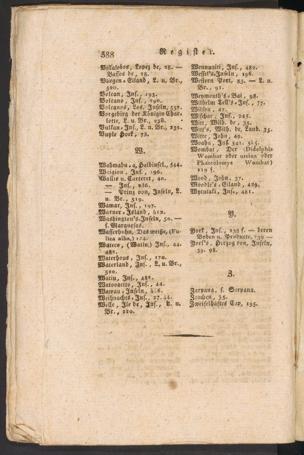 588 Register.
Villalobos, Lopez de, 18. —
Bassos de, 18.
Vorgen-Eiland, L. u. Br.,
500.
Volcan, Ins., 193.
Volcano, Ins., 190.
Volcanos, Los, Inseln, 531.
Vorgebirg der Königin Char-
lotte, L. u. Br., 138.
Vulkan-Ins., L. u. Br., 131.
Vuyle Hoek, 72.
W.
Wahmahu-a, Halbinsel, 544.
Weigion, Ins., 196.
Wallis u. Carteret, 40.
— Ins., 486.
— Prinz von, Inseln, L.
u. Br., 519.
Wamar, Ins., 197.
Warner-Island, 219.
Washington's-Inseln, 50. —
s. Marquesas.
Wasserhuhn, Das weiße, (Fu-
lica alba,) 124.
Wateeo, (Watiu) Ins., 44.
481.
Waterhous, Ins., 170.
Waterland, Ins., L. u. Br.,
510.
Watiu, Ins., 481.
Watooatoo, Ins., 44.
Wauwau-Inseln,
Weihnachts-Ins., 27. 44.
Welle, Ile de, Ins., L. u.
Br., 220.
Wennuaiti, Ins., 480.
Wessel's-Inseln, 196.
Western Port, 83. — L. u.
Br., 91.
Weymouth's-Bai, 98.
Wilhelm Tell's-Ins., 77.
Wilson, 47.
Wischar, Ins., 245.
Witt, Wilh. de, 35.
Witt's, Wilh. de, Land, 35.
Witte, John, 49.
Woahu, Ins., 541. 545.
Wombat, Der (Didelphis
Wombat oder ursina oder
Phascolomys Wombat)
119 f.
Wood, John, 37.
Woodle's-Eiland, 489.
Wytutaki, Ins., 481.
Y.
York, Ins., 135 f. — deren
Boden u. Producte, 139 —
York's, Herzog von, Inseln,
39. 98.
Z.
Zarpana, s. Sarpana.
Zeeuhen, 35.
Zweiselhaftes Cap, 155.